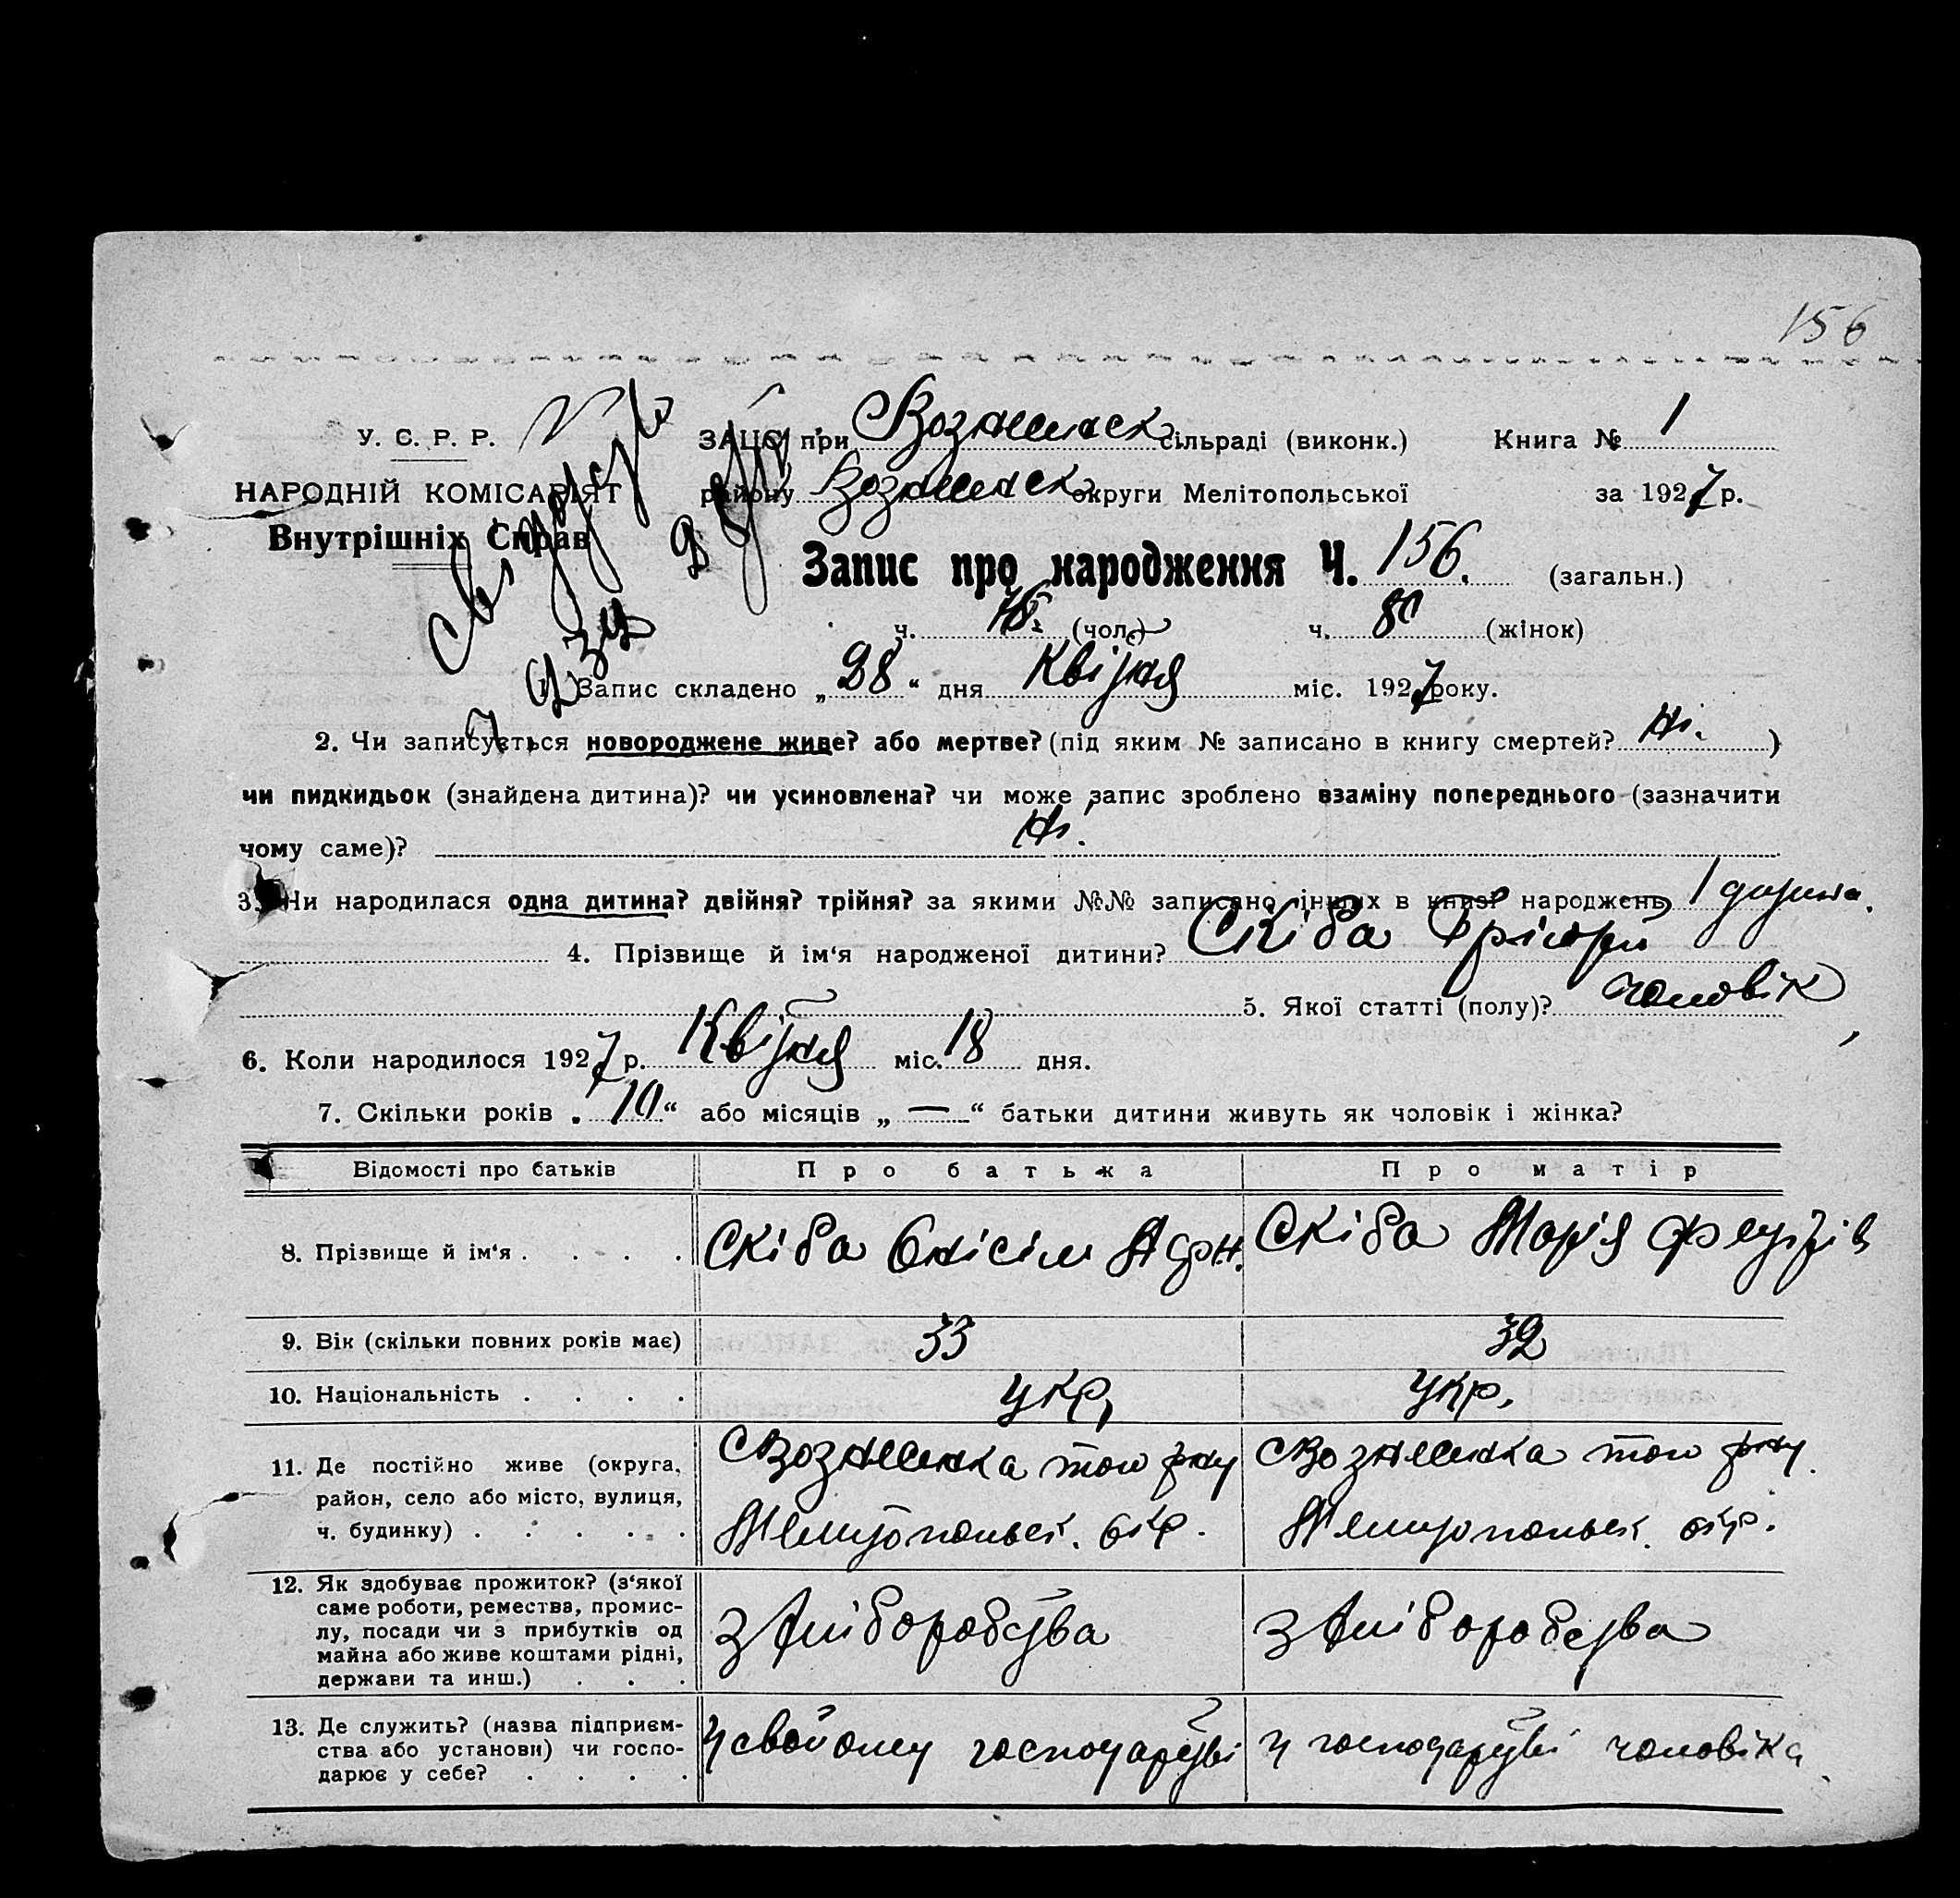 156
У. С. Р. Р. ЗАЦС при Вознешенск сільраді (виконк.) Книга № 1
НАРОДНІЙ КОМІСАРІЯТ району Вознешенск округи Мелітопольської за 1927 р.
Внутрішніх Справ
Запис про народження Ч. 156. (загальн.)
ч. (чол.) ч. 80 (жінок)
1. Запис складено „28“ дня Квітня міс. 1927 року.
2. Чи записується новороджене живе? або мертве? (під яким № записано в книгу смертей? Ні. )
чи пидкидьок (знайдена дитина)? чи усиновлена? чи може запис зроблено взаміну попереднього (зазначити
чому саме)? Ні.
3. Чи народилася одна дитина? двійня? трійня? за якими №№ записано інших в книзі народжень 1 дитина.
4. Прізвище й ім‘я народженої дитини? Скіба Грігорій
5. Якої статті (полу)? чоловік
6. Коли народилося 1927 р. Квітня міс. 18 дня.
7. Скільки років „10“ або місяців „—“ батьки дитини живуть як чоловік і жінка?
Відомості про батьків Про батька Про матір
8. Прізвище й ім‘я . . . . Скіба Онісім Скіба Марія
9. Вік (скільки повних років має) 33 32
10. Національність . . . . укр, укр.
11. Де постійно живе (округа, район, село або місто, вулиця, ч. будинку) . . . . .
Вознешенка того р-ну
Мелитопольск. окр.
Вознешенка того р-ну.
Мелитопольск. окр.
12. Як здобуває прожиток? (з‘якої
саме роботи, ремества, промис-
лу, посади чи з прибутків од
майна або живе коштами рідні,
держави та инш.) . . .
з хліборобства з хліборобства
13. Де служить? (назва підприєм-
ства або установи) чи госпо-
дарює у себе? . . . .
у свойому господарстві у господарстві чоловіка